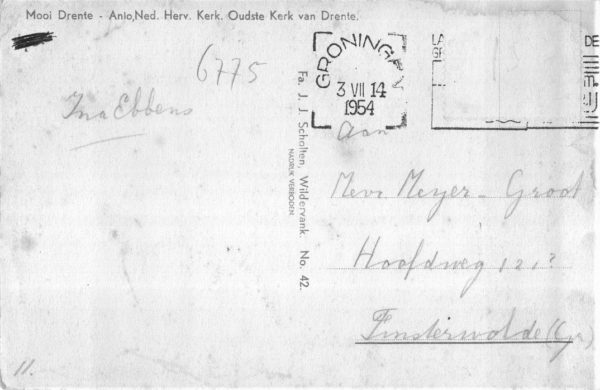 Mooi Drente - Anlo, Ned. Herv. Kerk. Oudste Kerk van Drente.
6775
Ina Ebbens
GRONINGEN
3 VII 14
1954
LA
GR
DE
Fa. J. J. Scholten, Wildervank. No. 42.
NADRUK VERBODEN
Aan
Mevr Meyer - Groot
Hoofdweg 121?
Finsterwolde (Gr)
11.